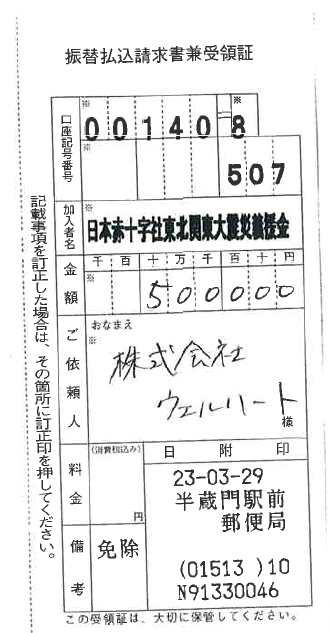 振替払込請求書兼受領証
口座記号番号
※
00140
※
8
※
507
加入者名
※
日本赤十字社東北関東大震災義援金
金額
千 百 十 万 千 百 十 円
※
500000
ご依頼人
おなまえ
※
株式会社
ウェルハート
様
料金
(消費税込み)
円
日 附 印
23-03-29
半蔵門駅前
郵便局
(01513 )10
N91330046
備考
免除
記載事項を訂正した場合は、その箇所に訂正印を押してください。
この受領証は、大切に保管してください。